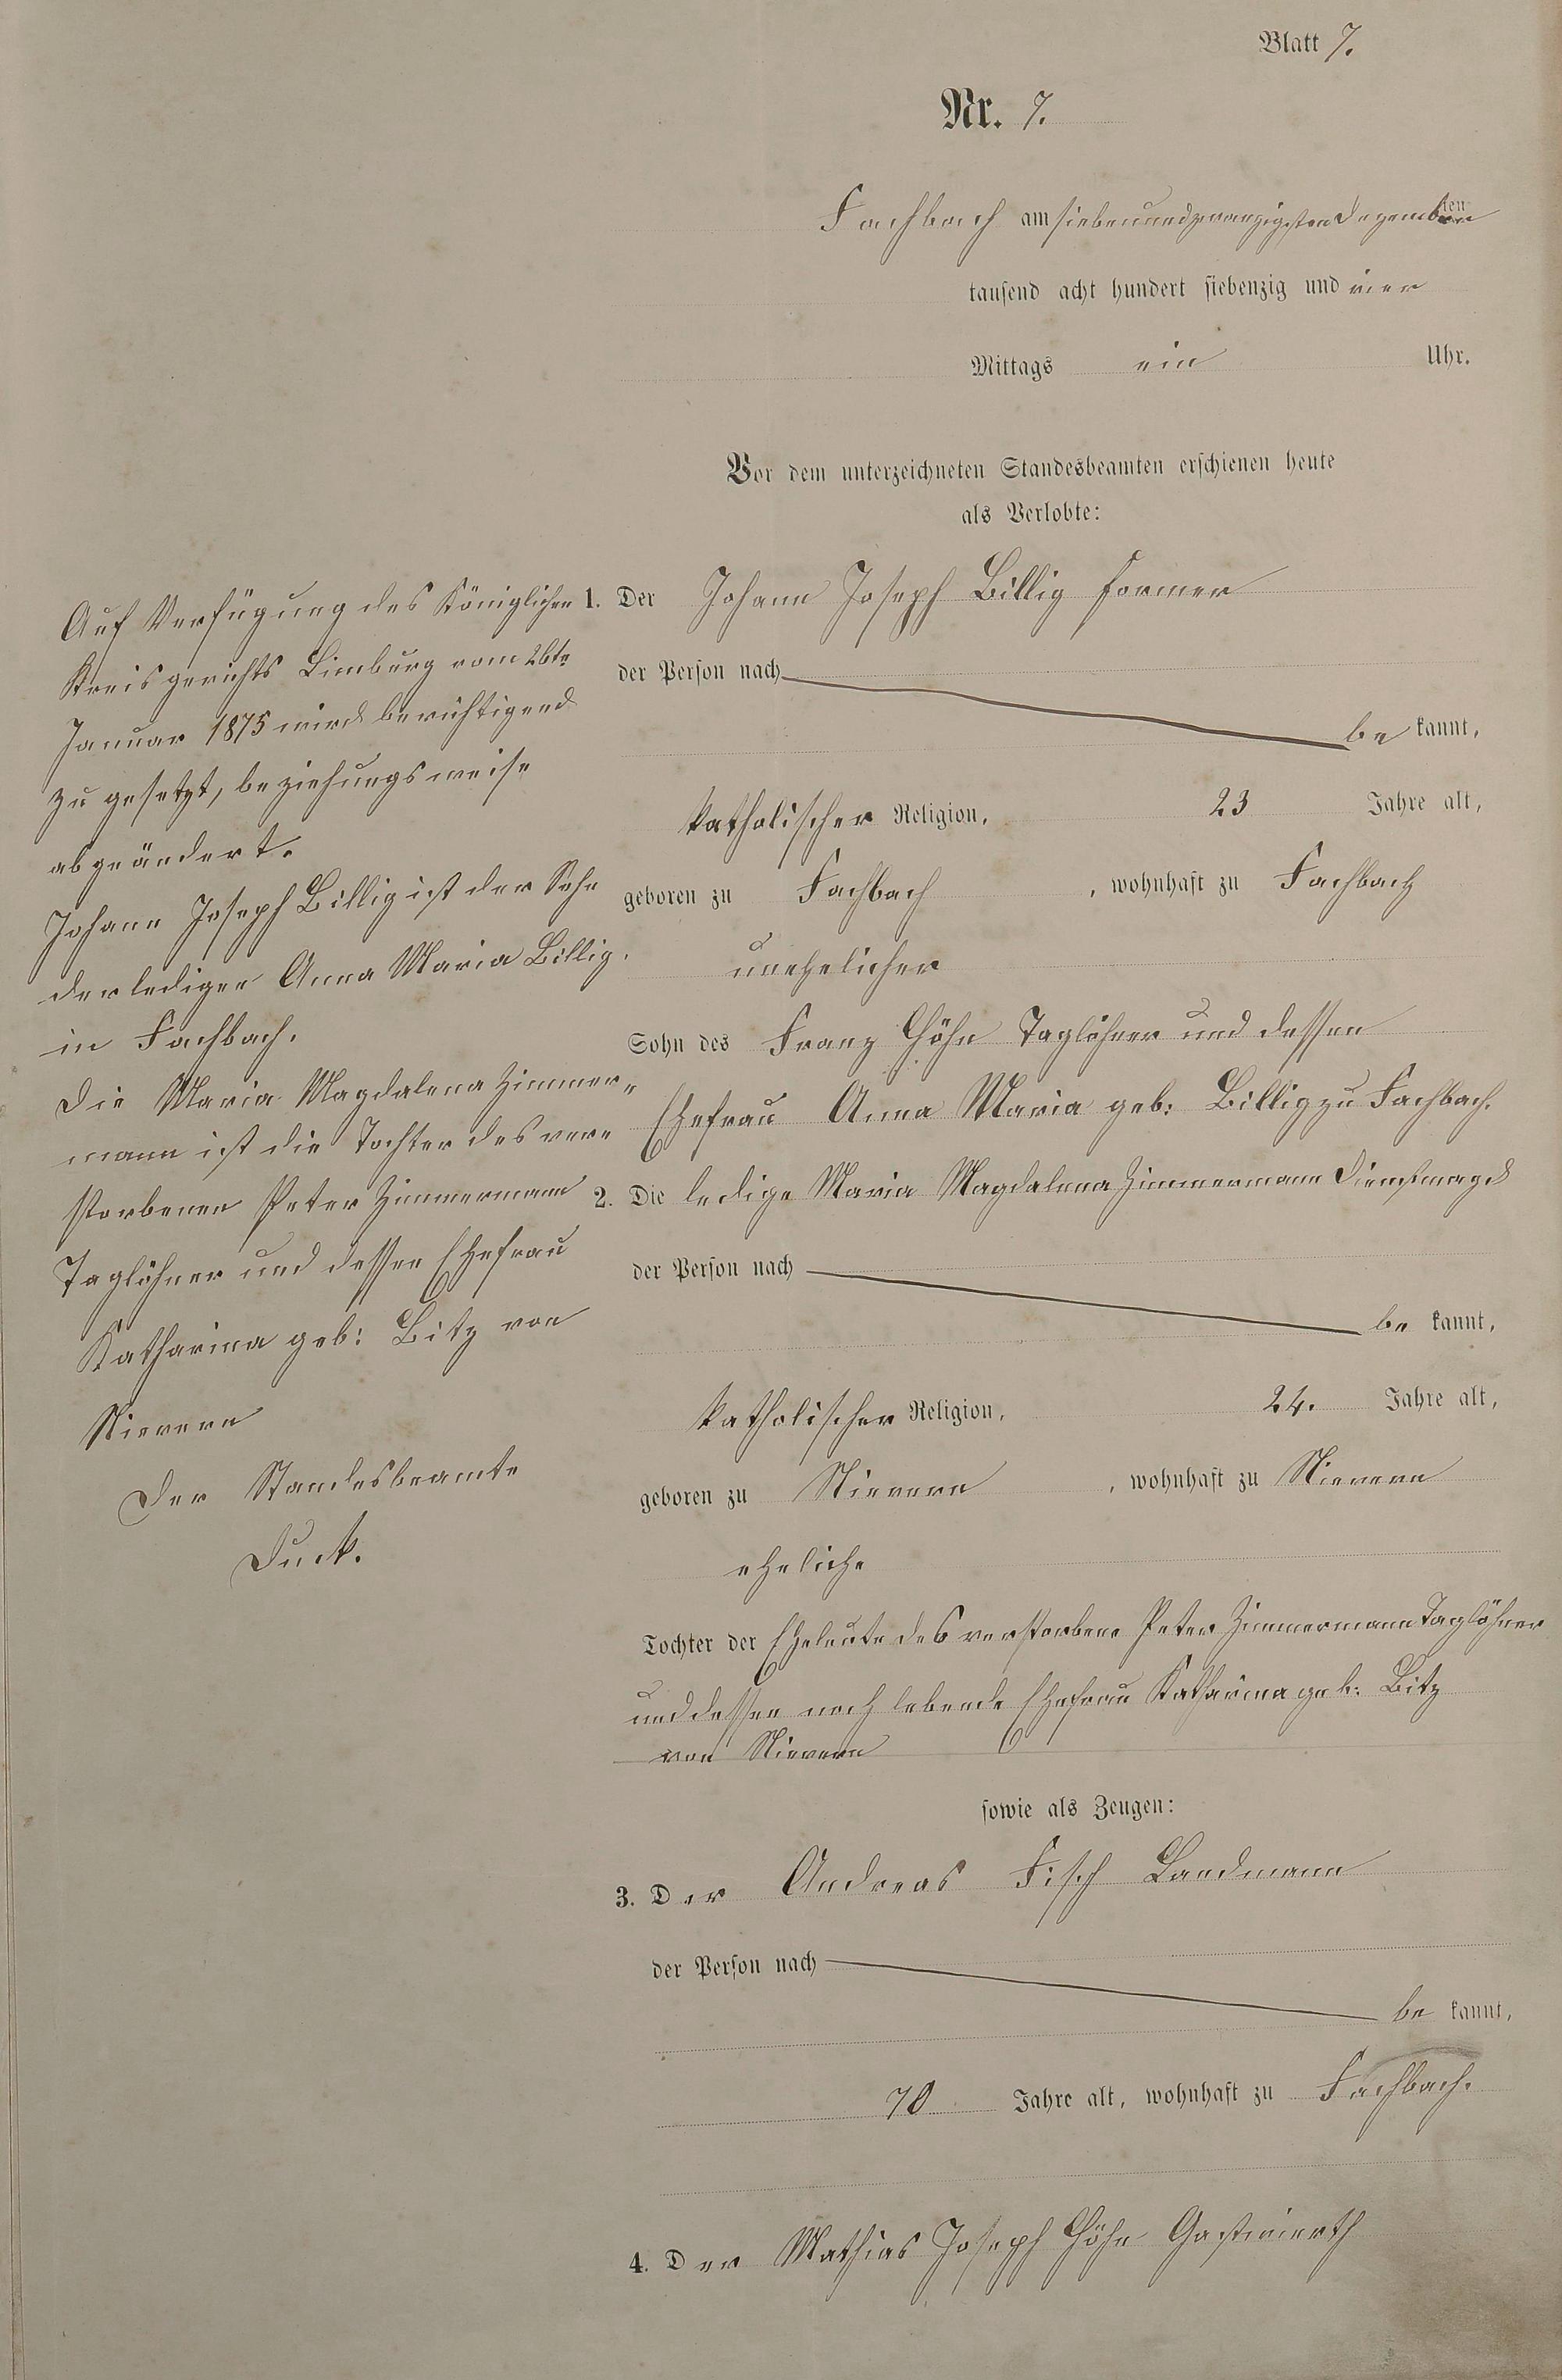 Blatt 7.
Nr. 7.
Fachbach am siebenundzwanzigsten Dezember ten
tausend acht hundert siebenzig und vier
Mittags ein Uhr.
Vor dem unterzeichneten Standesbeamten erschienen heute
als Verlobte:
1. Der Johann Joseph Billig Former
der Person nach
be kannt,
katholischer Religion, 23 Jahre alt,
geboren zu Fachbach, wohnhaft zu Fachbach
unehelicher
Sohn des Franz Höhn Taglöhner und dessen
Ehefrau Anna Maria geb: Billig zu Fachbach.
2. Die ledige Maria Magdalena Zimmermann Dienstmagd
der Person nach
be kannt,
katholischer Religion, 24. Jahre alt,
geboren zu Nievern, wohnhaft zu Nievern
eheliche
Tochter der Eheleute des verstorbene Peter Zimmermann Taglöhner
und dessen noch lebende Ehefrau Katharina geb: Bitz
von Nievern
sowie als Zeugen:
3. Der Andreas Fisch Landmann
der Person nach
be kannt,
70 Jahre alt, wohnhaft zu Fachbach.
4. Der Mathias Joseph Höhn Gastwierth
Auf Verfügung des Königlichen
Kreisgerichts Limburg vom 26te
Januar 1875 wird berichtigend
zu gesetzt, beziehungsweise
abgeändert.
Johann Joseph Billig ist der Sohn
der ledigen Anna Maria Billig.
in Fachbach.
Die Maria Magdalena Zimmer-
mann ist die Tochter des ver-
storbenen Peter Zimmermann
Taglöhner und dessen Ehefrau
Katharina geb: Bitz von
Nievern
Der Standesbeamte
Duck.